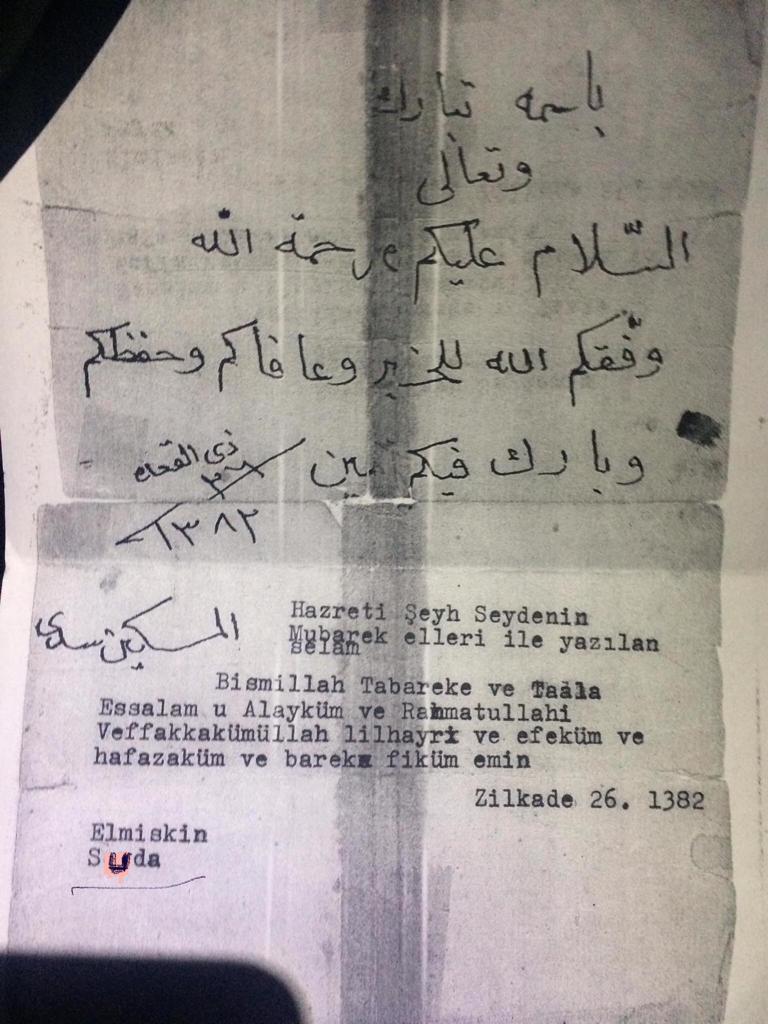 باسمه تبارك
وتعالى
السّلام عليكم ورحمة الله
وفّقكم الله للخير وعافاكم وحفظكم
وبارك فيكم مين
ذى القعده
٢٦
١٣٨٢
المسكين سيدى
Hazreti Şeyh Seydenin
Mubarek elleri ile yazılan
selam
Bismillah Tabareke ve Taala
Essalam u Alayküm ve Rahmatullahi
Veffakkakümüllah lilhayri ve efeküm ve
hafazaküm ve bareke fiküm emin
Zilkade 26. 1382
Elmiskin